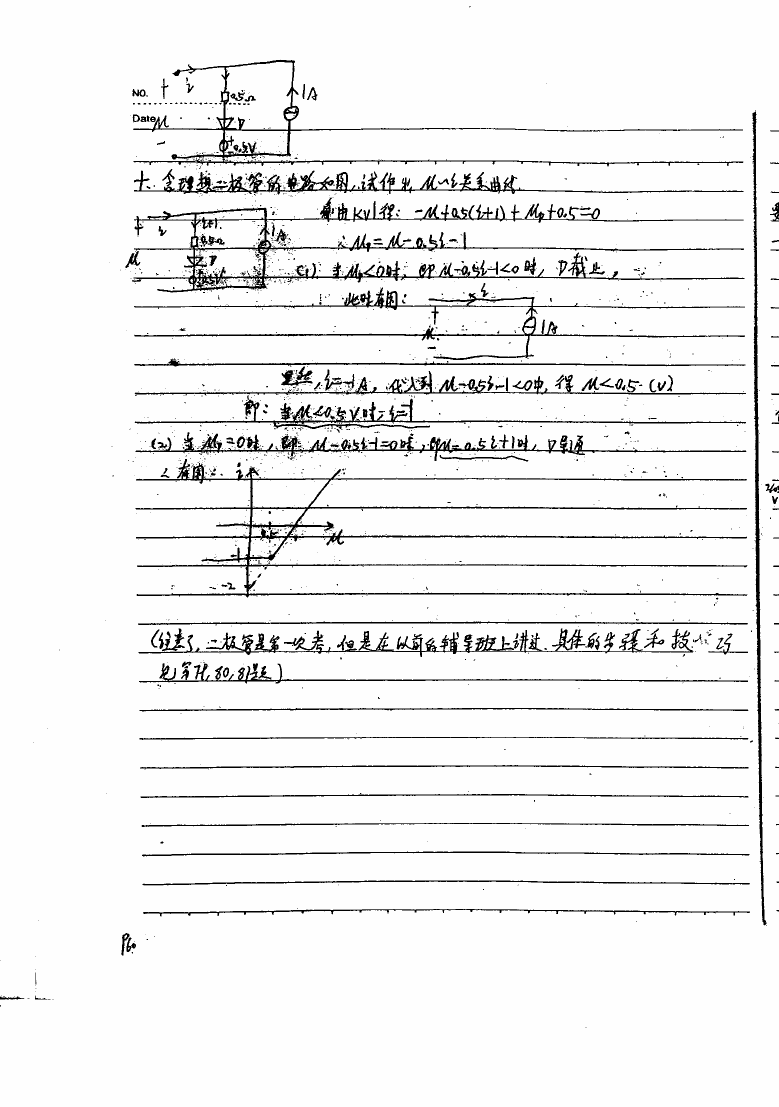 NO.
+ i 0.5Ω 1A
Date u D
- + 0.5V
十. 含理想二极管的电路如图, 试作出 u~i 关系曲线.
由KVL得: -u+0.5(i+1)+u_D+0.5=0
+ i i+1 0.5Ω 1A
∴ u_D=u-0.5i-1
u D
- 0.5V
(1) 当 u_D<0时, 即 u-0.5i-1<0时, D截止,
此时有图: i
+ u - 1A
显然, i=-1A, 代入到 u-0.5i-1<0中, 得 u<0.5 (V)
即: 当u<0.5V时, i=-1
(2) 当 u_D=0时, 即 u-0.5i-1=0时, 即u=0.5i+1时, D导通.
∠ 有图: i
0.5 u
-1
-2
二极管是第一次考, 但是在以前的辅导班上讲过. 具体的步骤和技巧
80, 81题)
P60